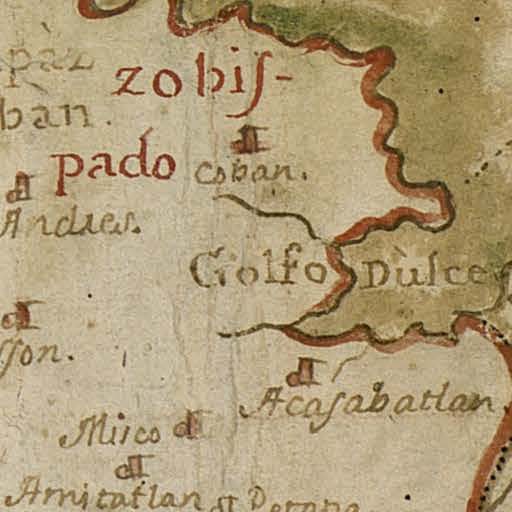 zobis-
ban.
pado
Coban.
Andres.
Golfo Dùlce
sson.
Acasabatlan
Misco
Amitatlan Petapa